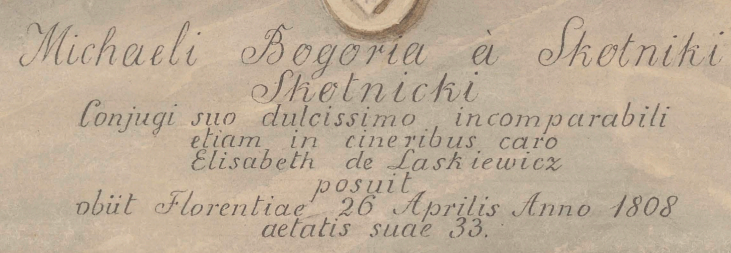 Michaeli Bogoria à Skotniki
Skotnicki
Conjugi suo dulcissimo incomparabili
etiam in cineribus caro
Elisabeth de Laskiewicz
posuit
obiit Florentiae 26 Aprilis Anno 1808
aetatis suae 33.